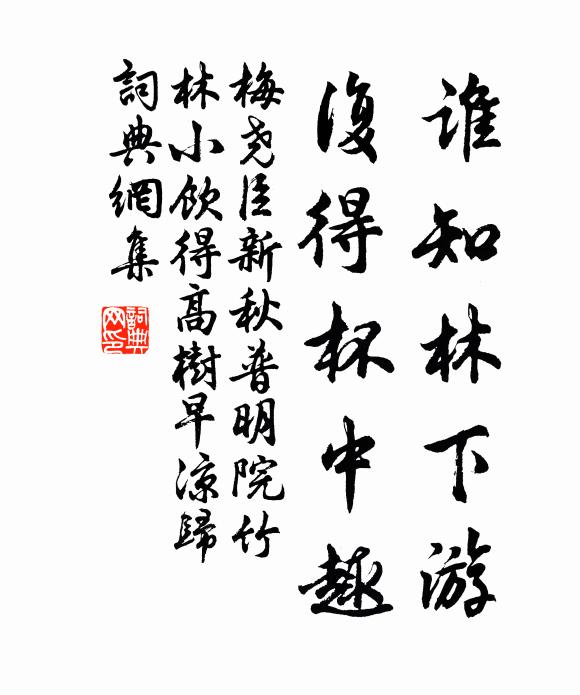 谁知林下游
復得杯中趣
梅尧臣新秋普明院竹
林小饮得高樹早凉歸
詞典網集
詞典网印